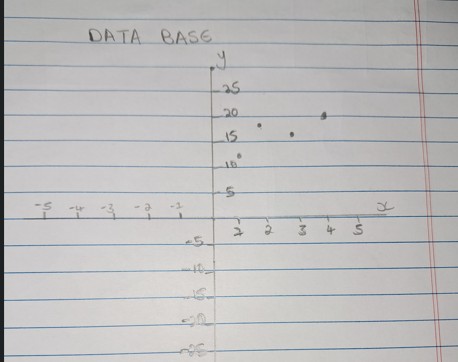 DATA BASE
y
25
20
15
10
5
-5 -4 -3 -2 -1 x
1 2 3 4 5
-5
-10
-15
-20
-25